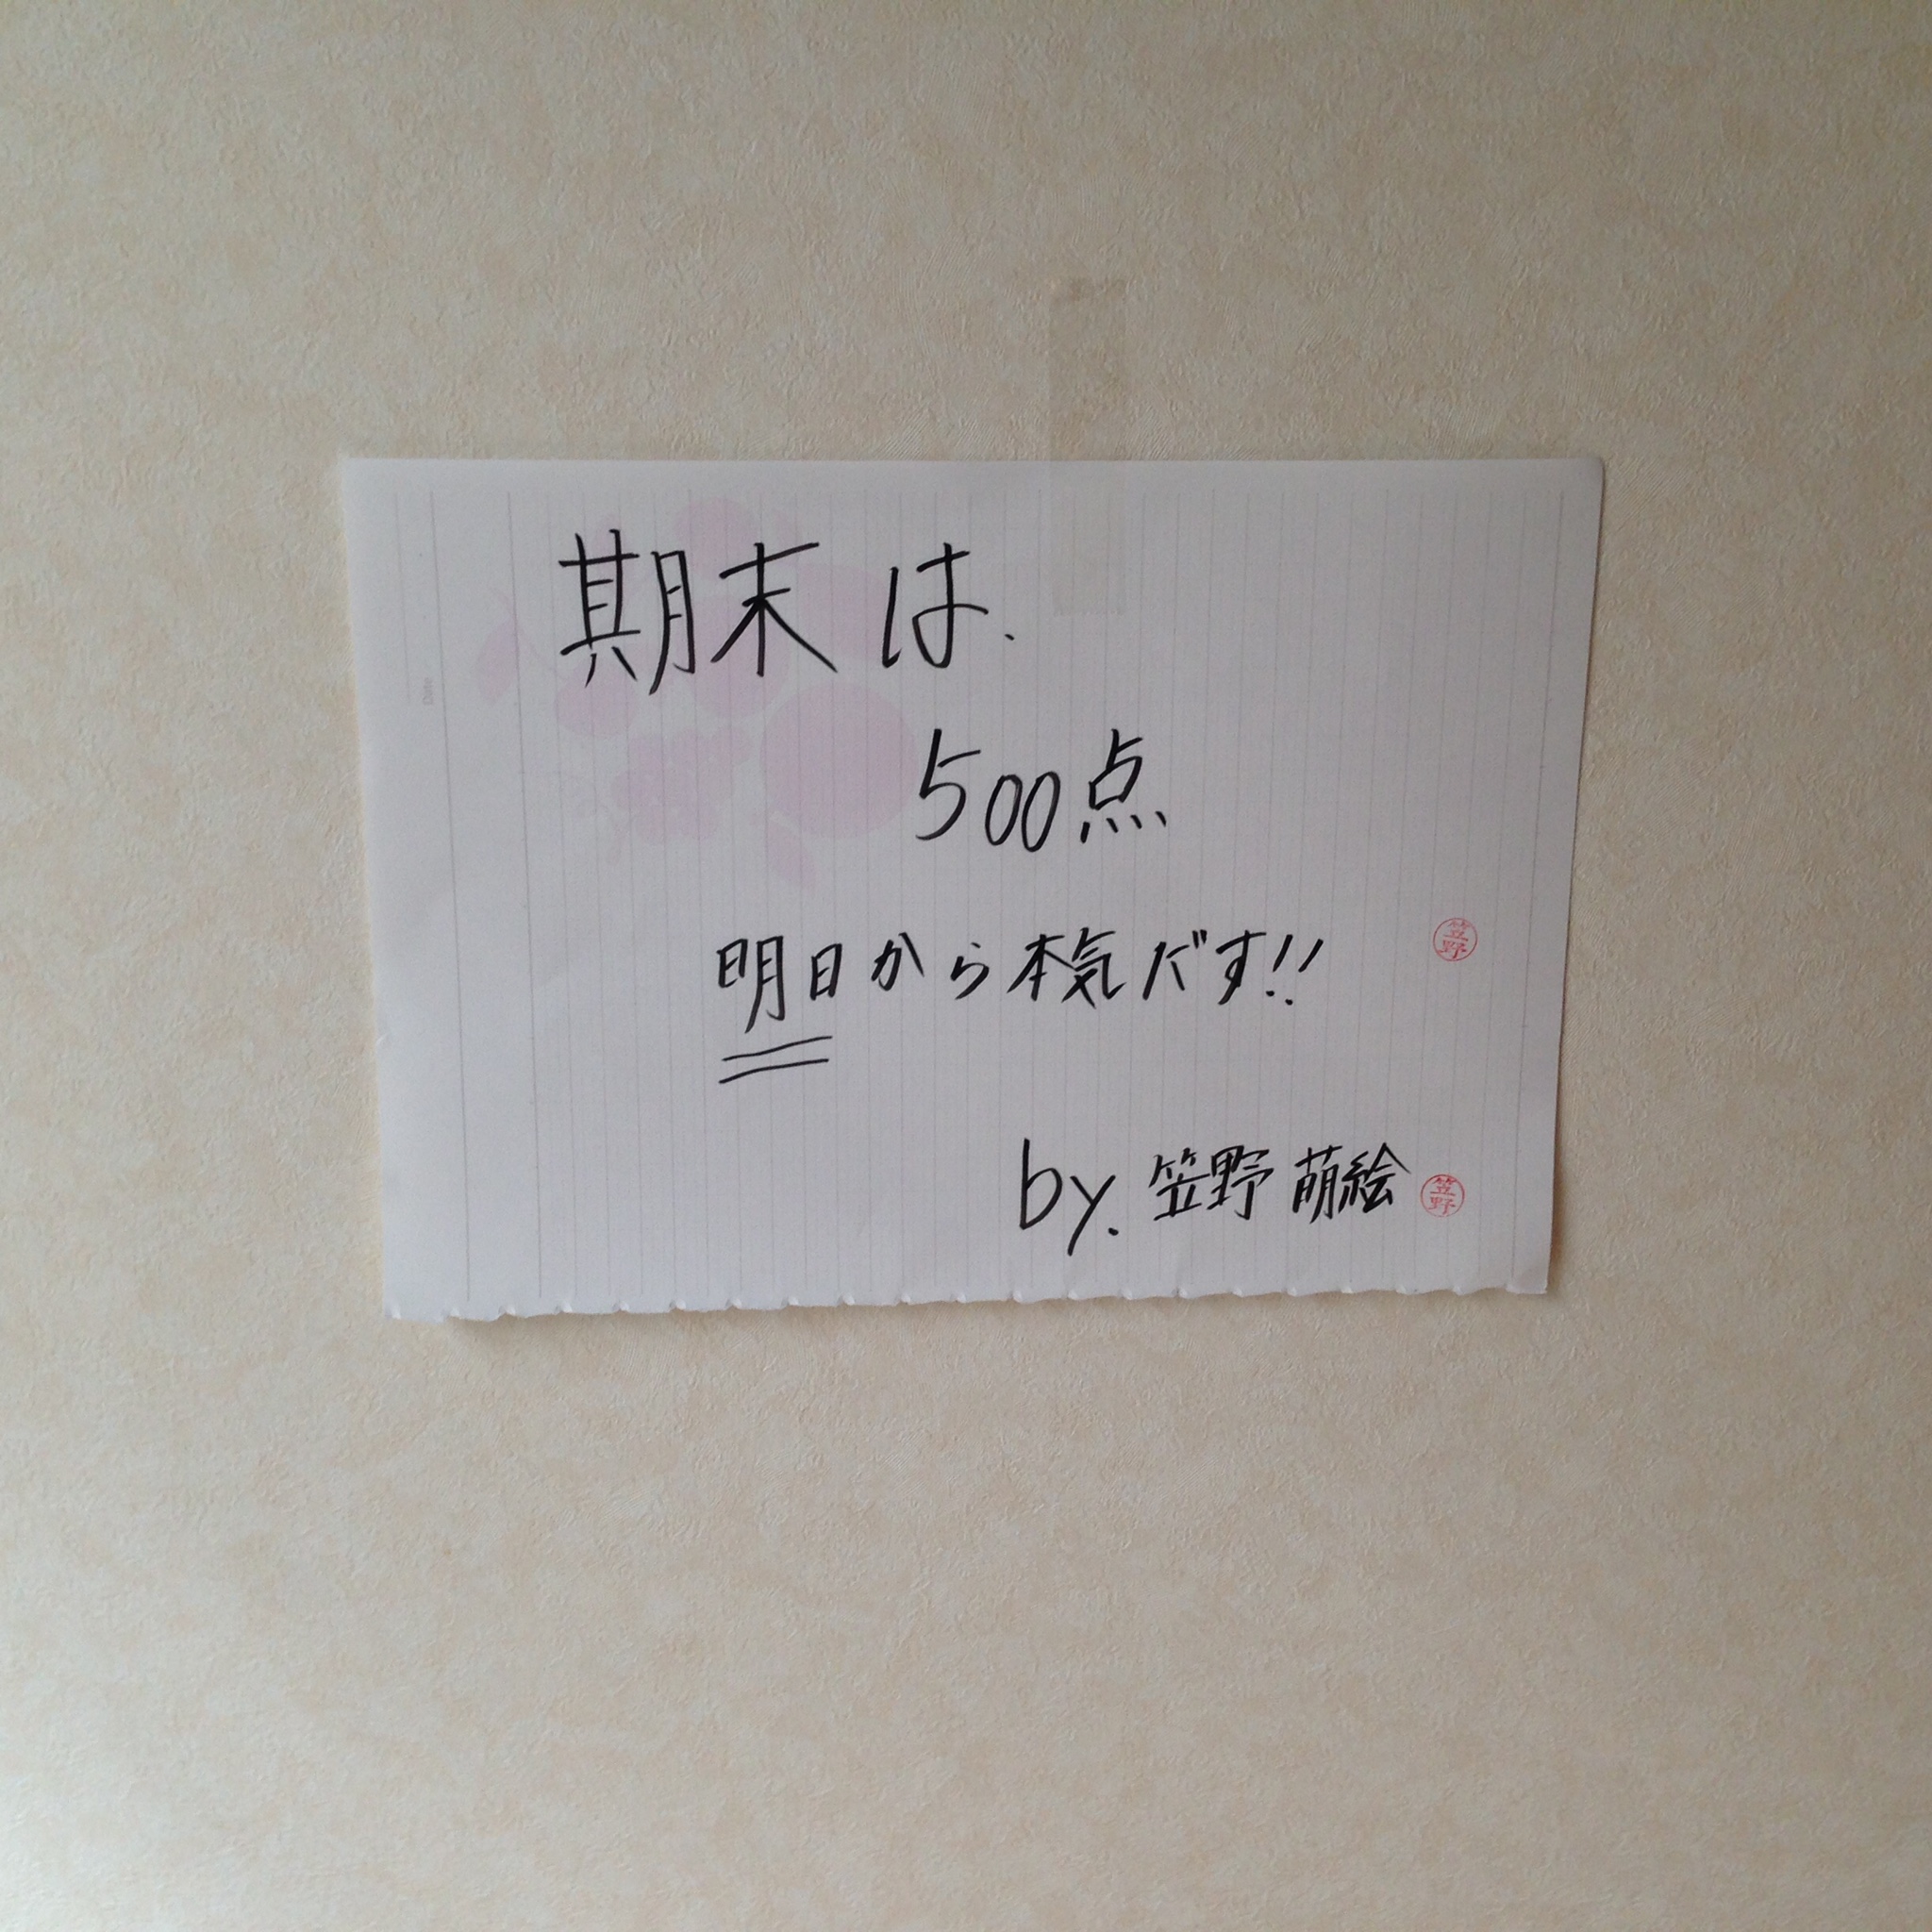 期末は、
500点
明日から本気だす!!
笠野
by. 笠野 萌絵 笠野
Date